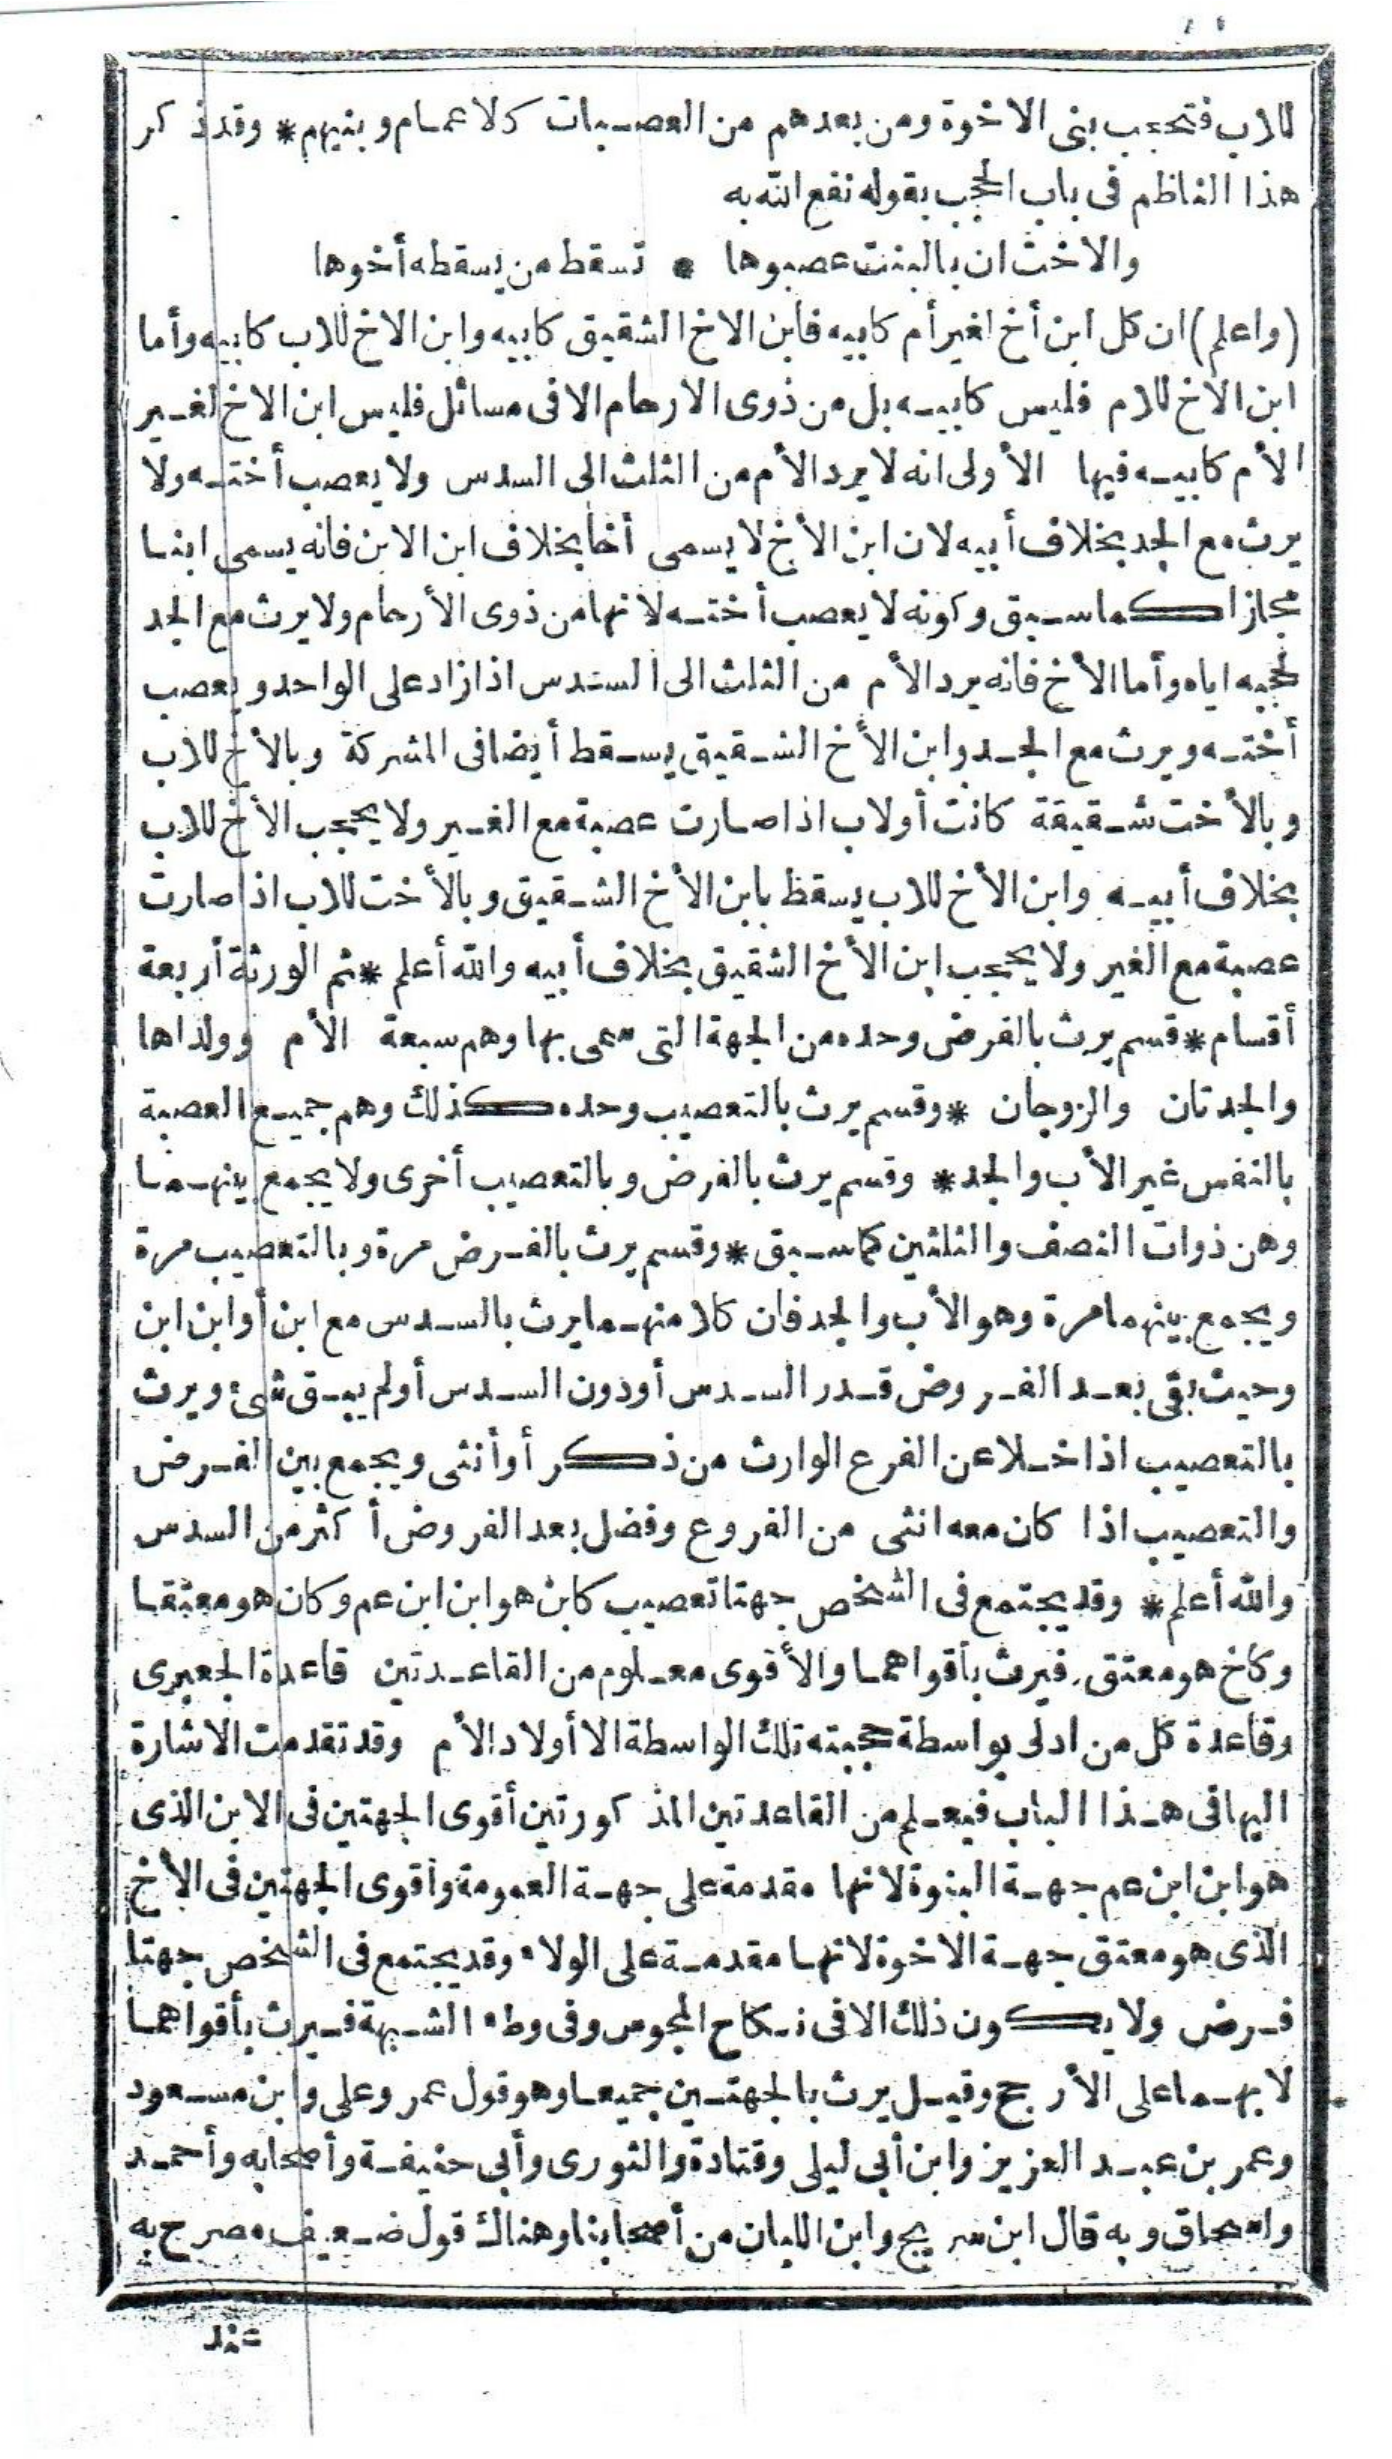 للاب فتحجب بنى الاخوة ومن بعدهم من العصبات كالاعمام وبنيهم * وقد ذكر
هذا الناظم فى باب الحجب بقوله نفع الله به
والاخت ان بالبنت عصبوها * تسقط من يسقطه أخوها
(واعلم) ان كل ابن أخ لغير أم كابيه فابن الاخ الشقيق كابيه وابن الاخ للاب كابيه وأما
ابن الاخ للام فليس كابيه بل من ذوى الارحام الا فى مسائل فليس ابن الاخ لغير
الأم كابيه فيها الأولى انه لا يرد الأم من الثلث الى السدس ولا يعصب أخته ولا
يرث مع الجد بخلاف أبيه لان ابن الأخ لا يسمى أخا بخلاف ابن الابن فانه يسمى ابنا
مجازا كما سبق وكونه لا يعصب أخته لانها من ذوى الأرحام ولا يرث مع الجد
لحجبه اياه وأما الأخ فانه يرد الأم من الثلث الى السدس اذا زاد على الواحد ويعصب
أخته ويرث مع الجد وابن الأخ الشقيق يسقط أيضا فى المشركة وبالأخ للاب
وبالأخت شقيقة كانت أو لاب اذا صارت عصبة مع الغير ولا يحجب الأخ للاب
بخلاف أبيه وابن الأخ للاب يسقط بابن الأخ الشقيق وبالأخت للاب اذا صارت
عصبة مع الغير ولا يحجب ابن الأخ الشقيق بخلاف أبيه والله أعلم * ثم الورثة أربعة
أقسام * قسم يرث بالفرض وحده من الجهة التى سمى بها وهم سبعة الأم وولداها
والجدتان والزوجان * وقسم يرث بالتعصيب وحده كذلك وهم جميع العصبة
بالنفس غير الأب والجد * وقسم يرث بالفرض وبالتعصيب أخرى ولا يجمع بينهما
وهن ذوات النصف والثلثين كما سبق * وقسم يرث بالفرض مرة وبالتعصيب مرة
ويجمع بينهما مرة وهو الأب والجد فان كلا منهما يرث بالسدس مع ابن أو ابن ابن
وحيث بقى بعد الفروض قدر السدس أو دون السدس أو لم يبق شئ ويرث
بالتعصيب اذا خلا عن الفرع الوارث من ذكر أو أنثى ويجمع بين الفرض
والتعصيب اذا كان معه انثى من الفروع وفضل بعد الفروض أكثر من السدس
والله أعلم * وقد يجتمع فى الشخص جهتا تعصيب كابن هو ابن ابن عم وكان هو معتقا
وكاخ هو معتق فيرث بأقواهما والأقوى معلوم من القاعدتين قاعدة الجعبرى
وقاعدة كل من ادلى بواسطة حجبته تلك الواسطة الا أولاد الأم وقد تقدمت الاشارة
اليها فى هذا الباب فيعلم من القاعدتين المذكورتين أقوى الجهتين فى الابن الذى
هو ابن ابن عم جهة البنوة لانها مقدمة على جهة العمومة وأقوى الجهتين فى الأخ
الذى هو معتق جهة الاخوة لانها مقدمة على الولاء وقد يجتمع فى الشخص جهتا
فرض ولا يكون ذلك الا فى نكاح المجوس وفى وطء الشبهة فيرث بأقواهما
لا بهما على الأرجح وقيل يرث بالجهتين جميعا وهو قول عمر وعلى وابن مسعود
وعمر بن عبد العزيز وابن أبى ليلى وقتادة والثورى وأبى حنيفة وأصحابه وأحمد
واسحاق وبه قال ابن سريج وابن اللبان من أصحابنا وهناك قول ضعيف مصرح به
عند